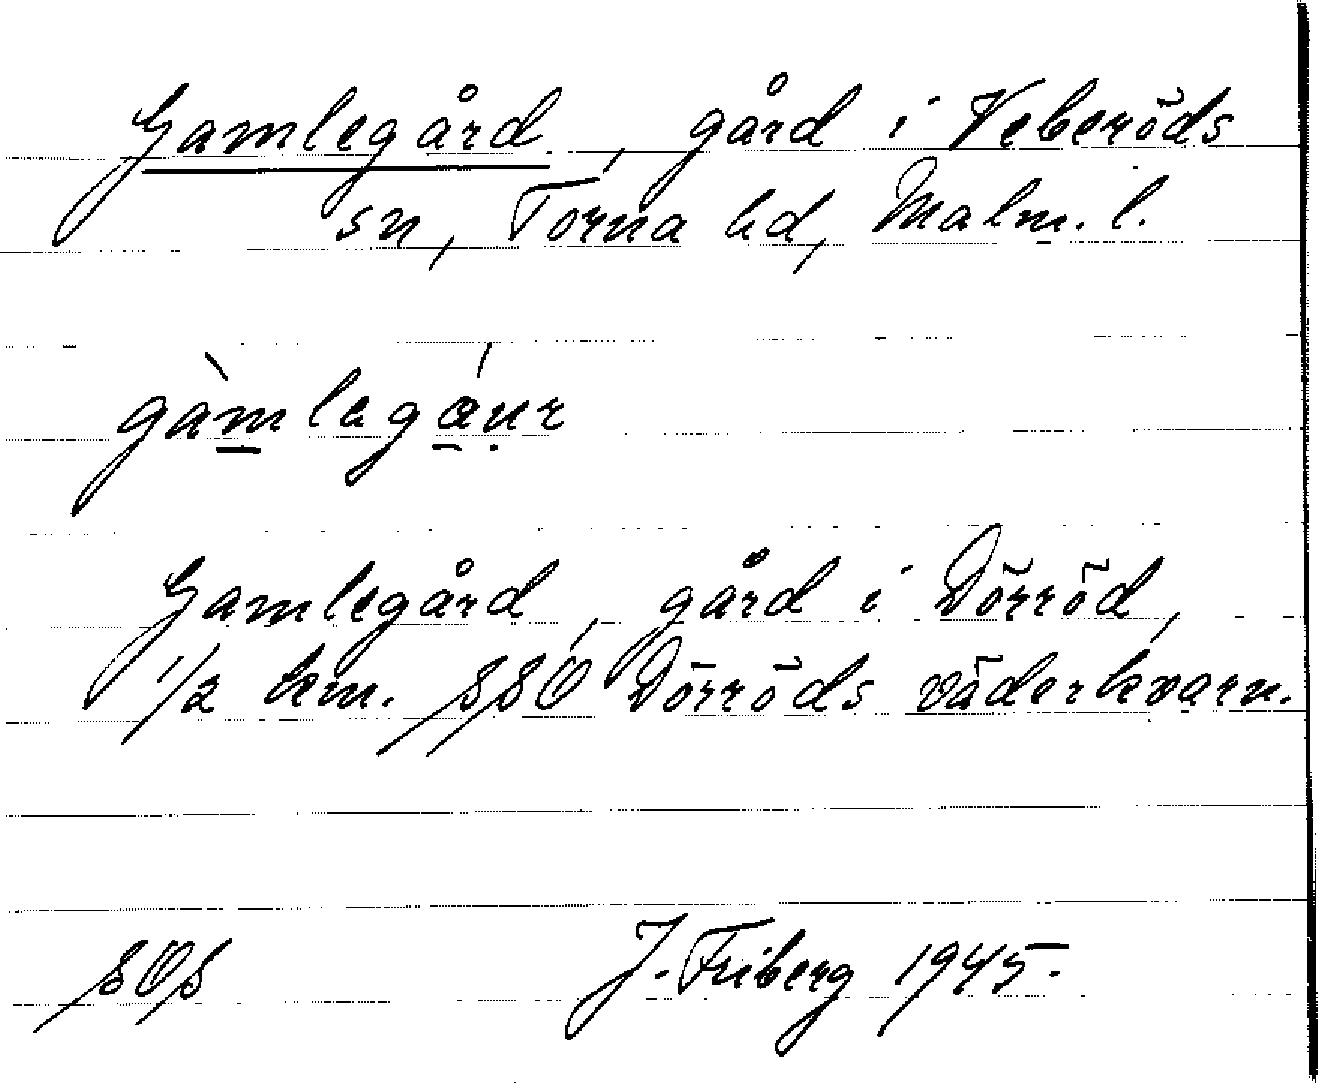 Gamlegård, gård i Veberöds
sn, Torna hd, Malm. l.
gàmlegáur
Gamlegård, gård i Dörröd,
1/2 hem. SSÖ Dörröds väderkvarn.
SOS J. Friberg 1945.